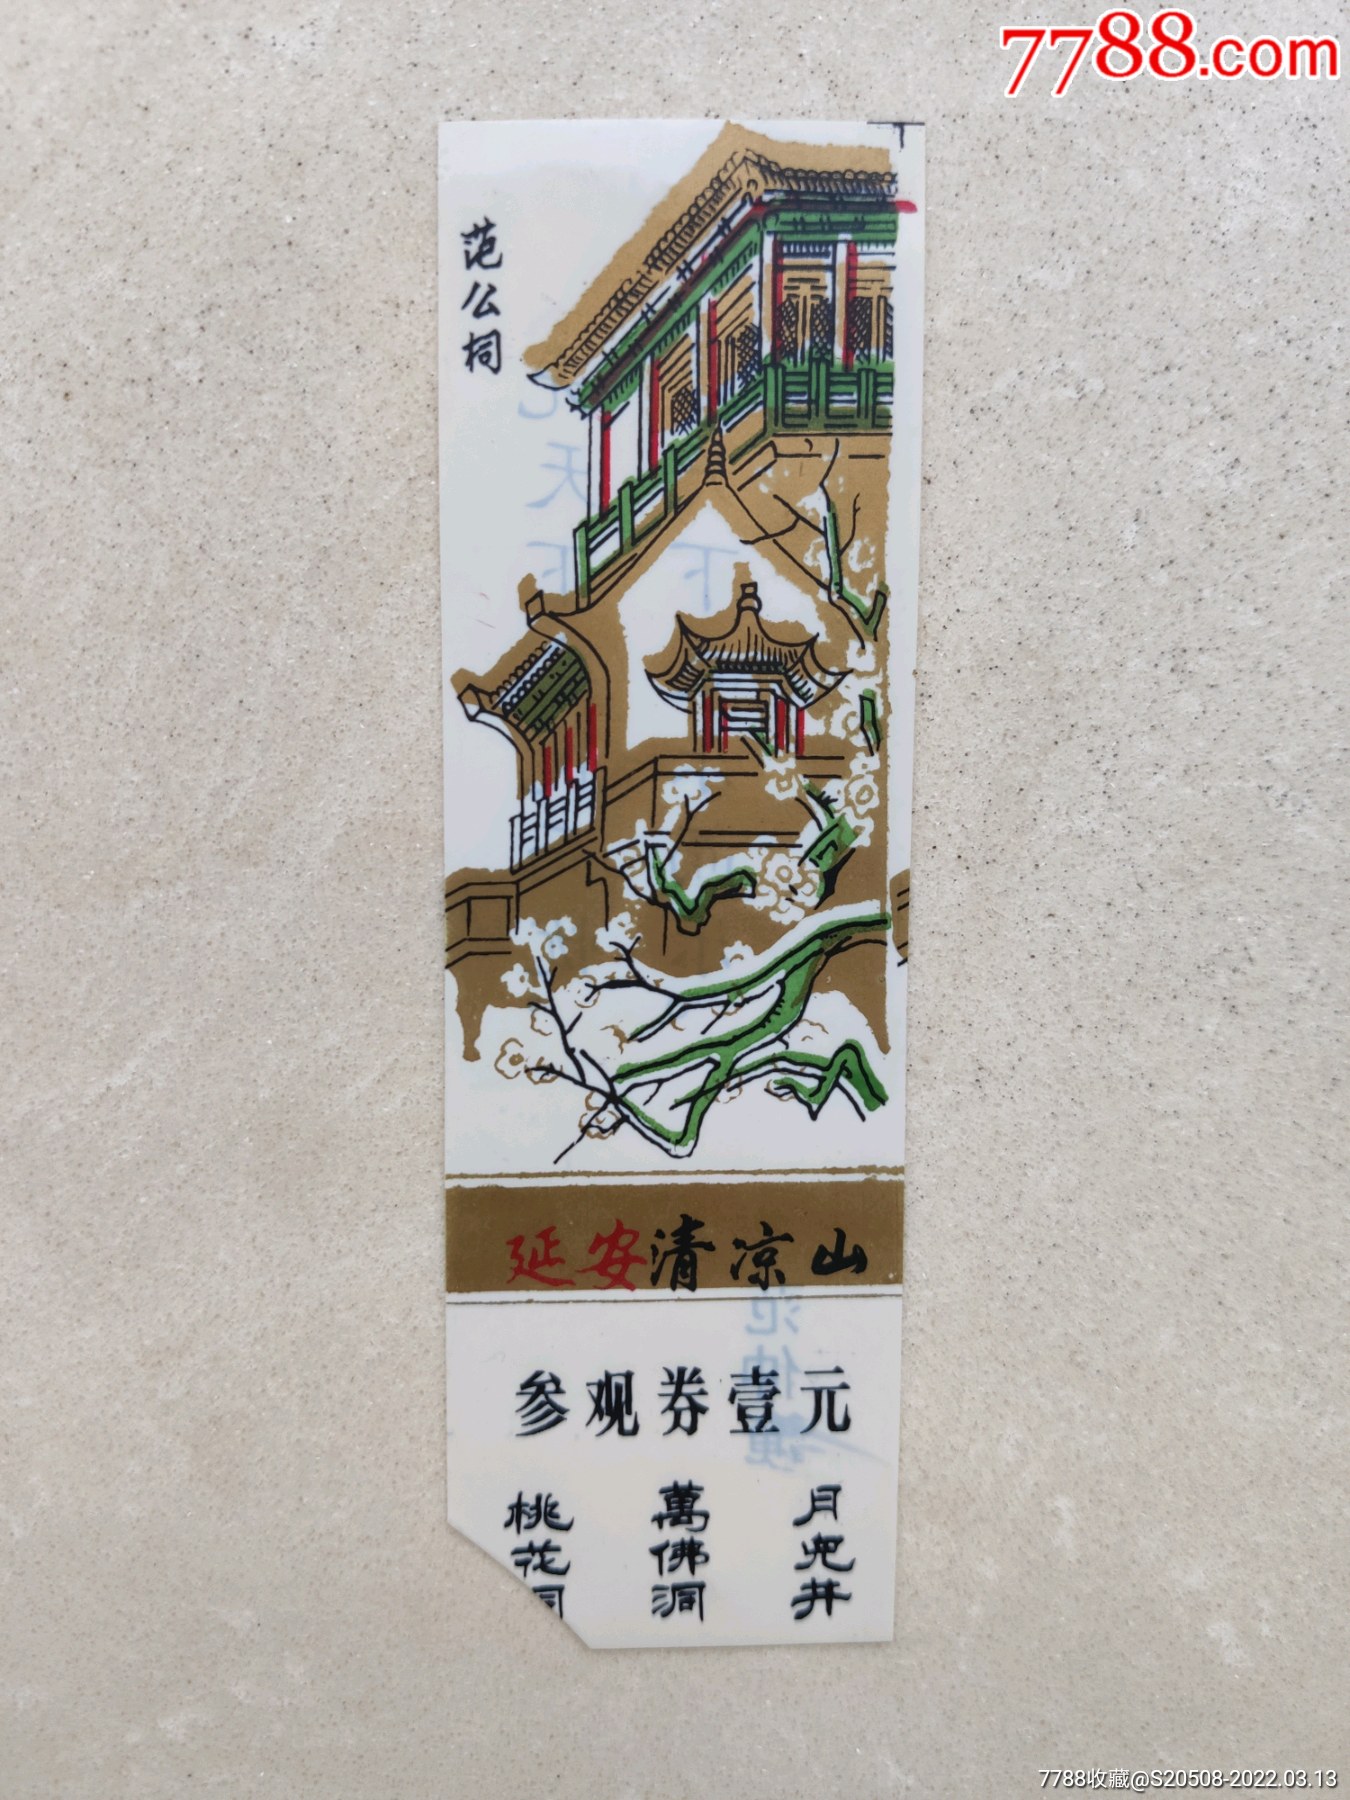 7788.com
范公祠
延安清凉山
参观券壹元
桃花洞
萬佛洞
月兒井
7788收藏@S20508-2022.03.13